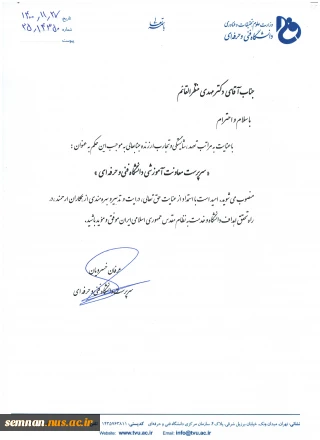 وزارت علوم تحقیقات و فناوری
دانشگاه فنی و حرفه‌ای
باسمه تعالی
تاریخ ۱۴۰۰,۱۱,۲۷
شماره ۲۵,۱۴۳۵۰
پیوست
جناب آقای دکتر مهدی منظرالقائم
با سلام و احترام
با عنایت به مراتب تعهد، شایستگی و تجارب ارزنده جنابعالی به موجب این حکم به عنوان :
« سرپرست معاونت آموزشی دانشگاه فنی و حرفه ای »
منصوب می شوید. امید است با استمداد از عنایات حق تعالی، درایت و تدبیر و بهره مندی از همکاران ارجمند، در
راه تحقق اهداف دانشگاه و خدمت به نظام مقدس جمهوری اسلامی ایران موفق و موید باشید.
عرفان خسرویان
سرپرست دانشگاه فنی و حرفه ای
نشانی: تهران، میدان ونک، خیابان برزیل شرقی، پلاک ۴ سازمان مرکزی دانشگاه فنی و حرفه‌ای کدپستی: ۱۴۳۵۷۶۳۸۱۱
Website: www.tvu.ac.ir Email: info@tvu.ac.ir
semnan.nus.ac.ir